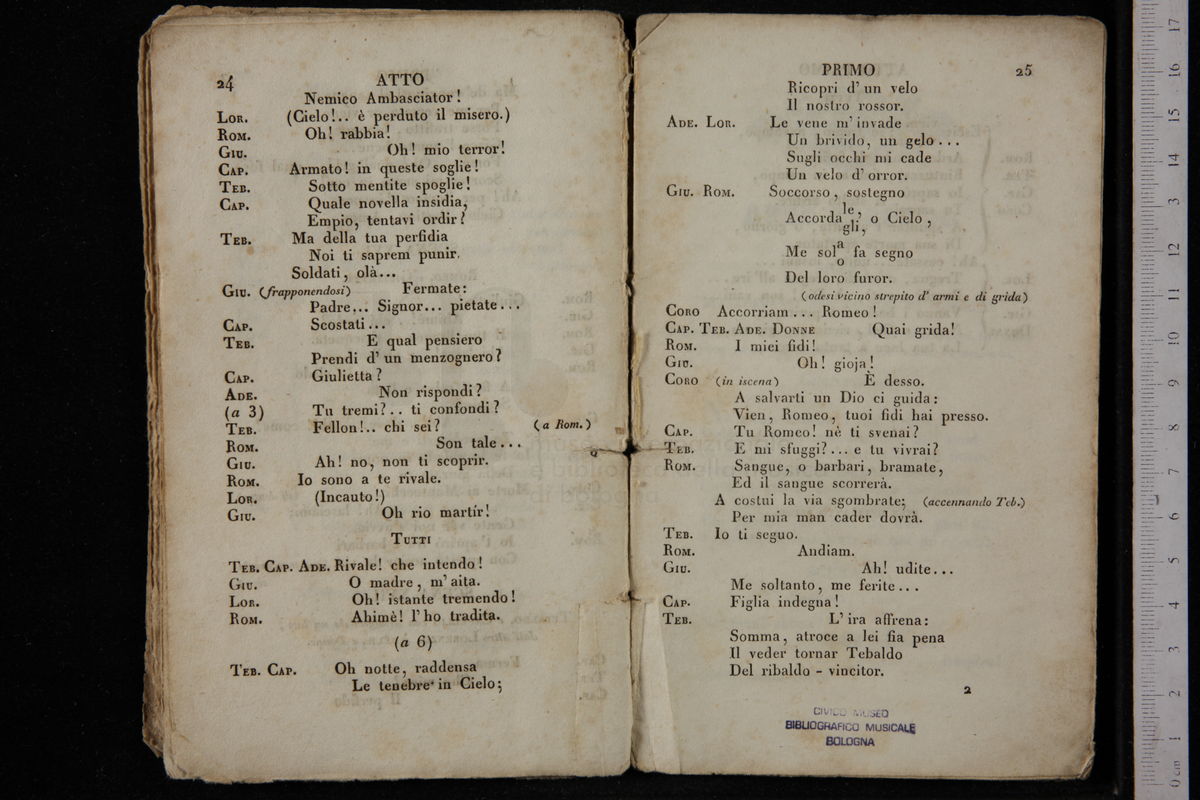 24 ATTO
Nemico Ambasciator!
LOR. (Cielo!.. è perduto il misero.)
ROM. Oh! rabbia!
GIU. Oh! mio terror!
CAP. Armato! in queste soglie!
TEB. Sotto mentite spoglie!
CAP. Quale novella insidia,
Empio, tentavi ordir?
TEB. Ma della tua perfidia
Noi ti saprem punir.
Soldati, olà...
GIU. (frapponendosi) Fermate:
Padre... Signor... pietate...
CAP. Scostati...
TEB. E qual pensiero
Prendi d' un menzognero?
CAP. Giulietta?
ADE. Non rispondi?
(a 3) Tu tremi?.. ti confondi?
TEB. Fellon!.. chi sei? (a Rom.)
ROM. Son tale...
GIU. Ah! no, non ti scoprir.
ROM. Io sono a te rivale.
LOR. (Incauto!)
GIU. Oh rio martír!
TUTTI
TEB. CAP. ADE. Rivale! che intendo!
GIU. O madre, m' aita.
LOR. Oh! istante tremendo!
ROM. Ahimè! l' ho tradita.
(a 6)
TEB. CAP. Oh notte, raddensa
Le tenebre in Cielo;
PRIMO 25
Ricopri d' un velo
Il nostro rossor.
ADE. LOR. Le vene m' invade
Un brivido, un gelo...
Sugli occhi mi cade
Un velo d' orror.
GIU. ROM. Soccorso, sostegno
Accorda le, gli, o Cielo,
Me sol a o fa segno
Del loro furor.
(odesi vicino strepito d' armi e di grida)
CORO Accorriam... Romeo!
CAP. TEB. ADE. DONNE Quai grida!
ROM. I miei fidi!
GIU. Oh! gioja!
CORO (in iscena) È desso.
A salvarti un Dio ci guida:
Vien, Romeo, tuoi fidi hai presso.
CAP. Tu Romeo! nè ti svenai?
TEB. E mi sfuggi?... e tu vivrai?
ROM. Sangue, o barbari, bramate,
Ed il sangue scorrerà.
A costui la via sgombrate; (accennando Teb.)
Per mia man cader dovrà.
TEB. Io ti seguo.
ROM. Andiam.
GIU. Ah! udite...
Me soltanto, me ferite...
CAP. Figlia indegna!
TEB. L' ira affrena:
Somma, atroce a lei fia pena
Il veder tornar Tebaldo
Del ribaldo - vincitor.
2
CIVICO MUSEO
BIBLIOGRAFICO MUSICALE
BOLOGNA
0 cm 1 2 3 4 5 6 7 8 9 10 11 12 13 14 15 16 17